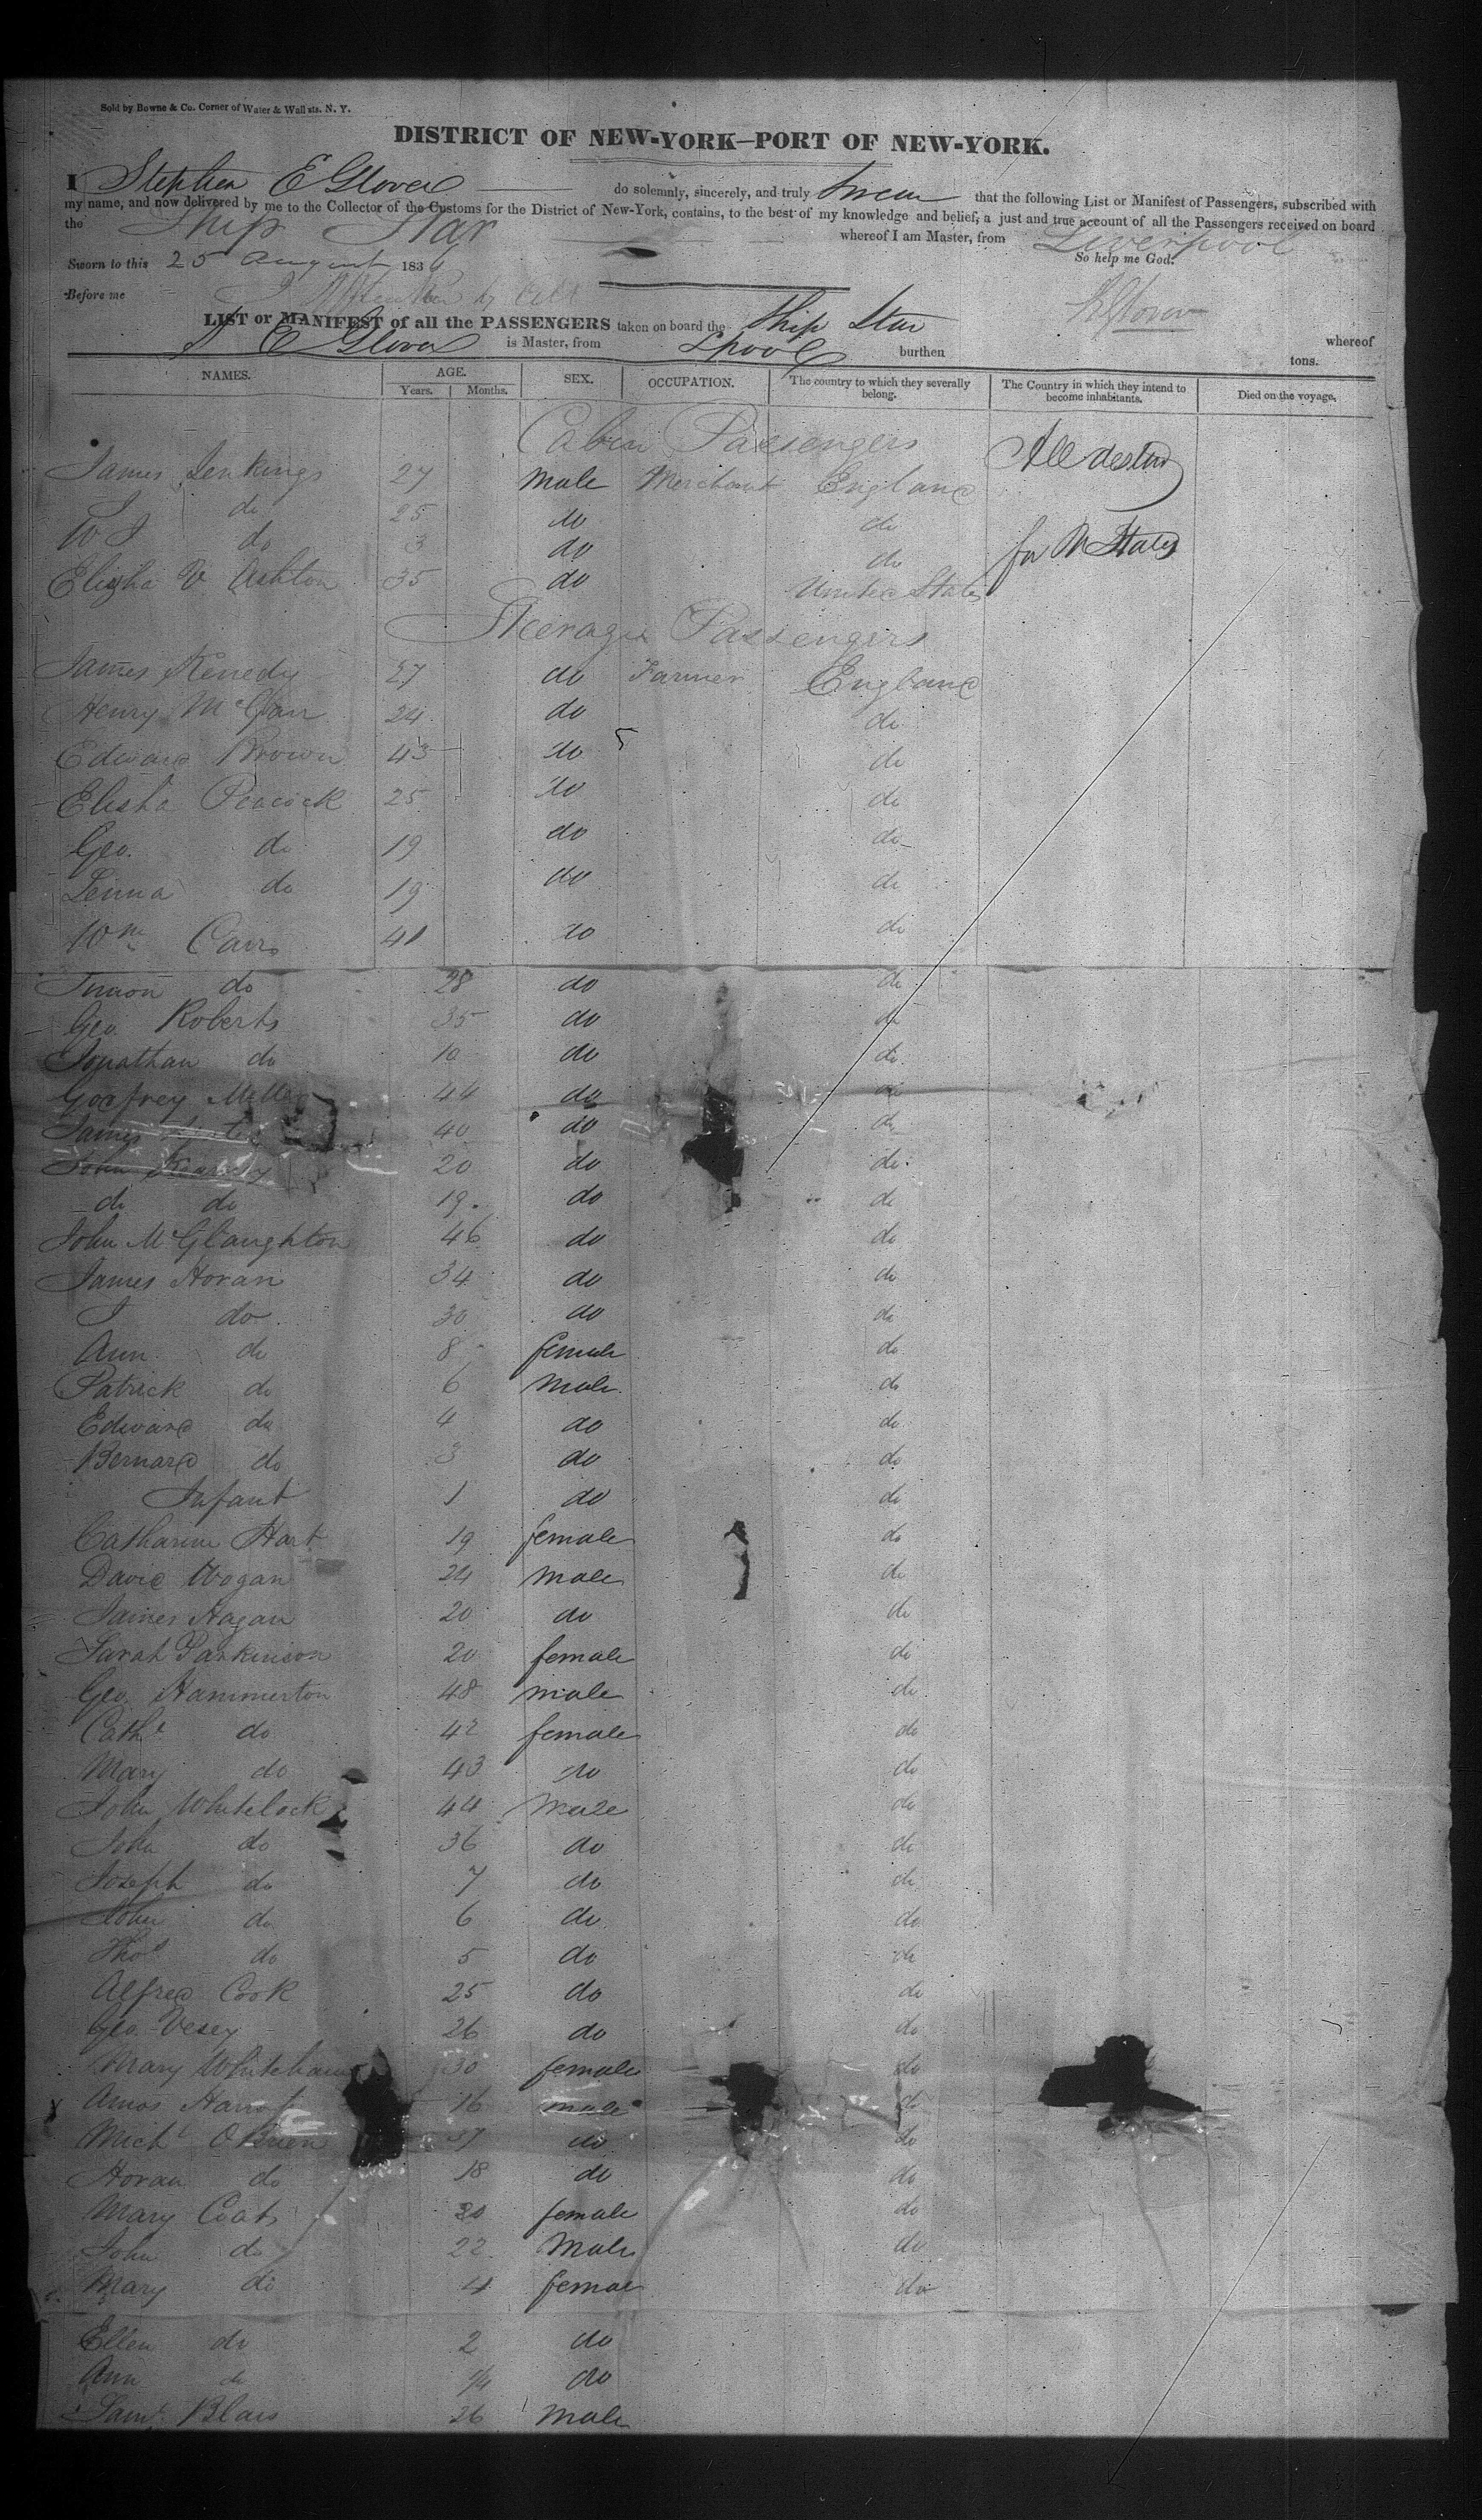 Sold by Bowne & Co. Corner of Water & Wall sts. N. Y.
DISTRICT OF NEW-YORK—PORT OF NEW-YORK.
I Stephen E Glover do solemnly, sincerely, and truly Swear that the following List or Manifest of Passengers, subscribed with
my name, and now delivered by me to the Collector of the Customs for the District of New-York, contains, to the best of my knowledge and belief, a just and true account of all the Passengers received on board
the Ship Star whereof I am Master, from Liverpool
Sworn to this 25 August 1836 So help me God.
Before me
S E Glover
LIST or MANIFEST of all the PASSENGERS taken on board the Ship Star whereof
S E Glover is Master, from Lpool burthen tons.
NAMES. AGE. SEX. OCCUPATION. The country to which they severally belong. The Country in which they intend to become inhabitants. Died on the voyage.
Years. Months.
Cabin Passengers
James Jenkings 27 Male Merchant England All destind
J do 25 do do
W J do 3 do do for U States
Elisha V Ashton 35 do United States
Steerage Passengers
James Kenedy 27 do Farmer England
Henry 24 do do
Edward Brown 43 do do
Elisha Peacock 25 do do
Geo. do 19 do do
do 19 do do
Wm Carrs 41 do do
do 28 do do
Geo. Roberts 35 do do
Jonathan do 10 do do
Godfrey Miller 44 do do
James 40 do do
John 20 do do
do do 19 do do
John McGlaughton 46 do do
James Horan 34 do do
J do 30 do do
Ann do 8 female do
Patrick do 6 Male do
Edward do 4 do do
Bernard do 3 do do
Infant 1 do do
Catharine Hart 19 female do
David Wogan 24 Male do
James Hagan 20 do do
Sarah Parkinson 20 female do
Geo. Hammerton 48 male do
Cathe do 42 female do
Mary do 43 do do
John Whitelock 44 Male do
John do 36 do do
Joseph do 7 do do
John do 6 do do
Thos do 5 do do
Alfred Cook 25 do do
Geo. Vesey 26 do do
Mary Whiteham 30 female do
Amos 16 male do
Michl OBrien 37 do do
Horan do 18 do do
Mary Coats 20 female do
John do 22 Male do
Mary do 4 female do
Ellen do 2 do
Ann do 1/4 do
Saml Blair 26 Male